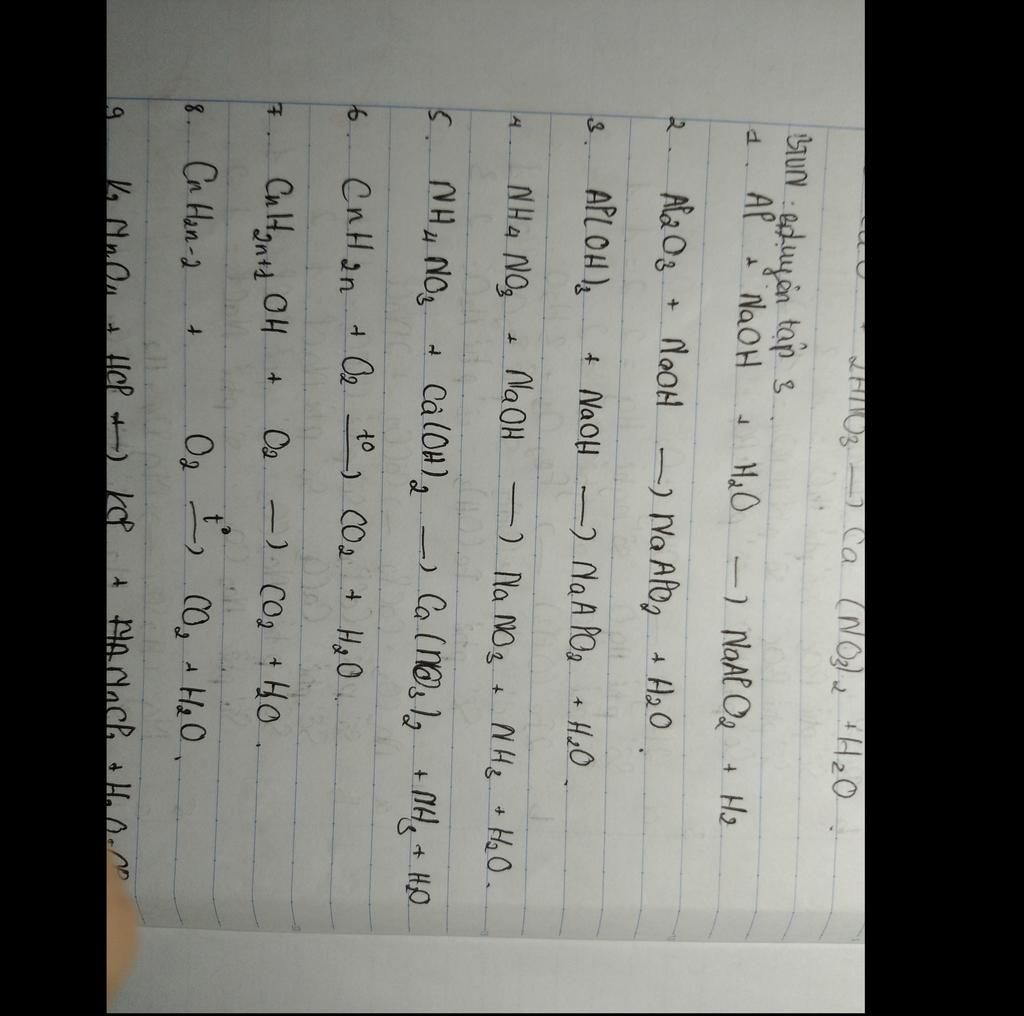 2HNO3 → Ca (NO3)2 + H2O.
BTVN: luyện tập 3
1. Al + NaOH + H2O → NaAlO2 + H2
2. Al2O3 + NaOH → NaAlO2 + H2O.
3. Al(OH)3 + NaOH → NaAlO2 + H2O.
4. NH4NO3 + NaOH → NaNO3 + NH3 + H2O.
5. NH4NO3 + Ca(OH)2 → Ca(NO3)2 + NH3 + H2O
6. CnH2n + O2 t° → CO2 + H2O.
7. CnH2n+1OH + O2 → CO2 + H2O.
8. CnH2n-2 + O2 t° → CO2 + H2O.
9. + HCl → KCl + MnCl2 + H2O +